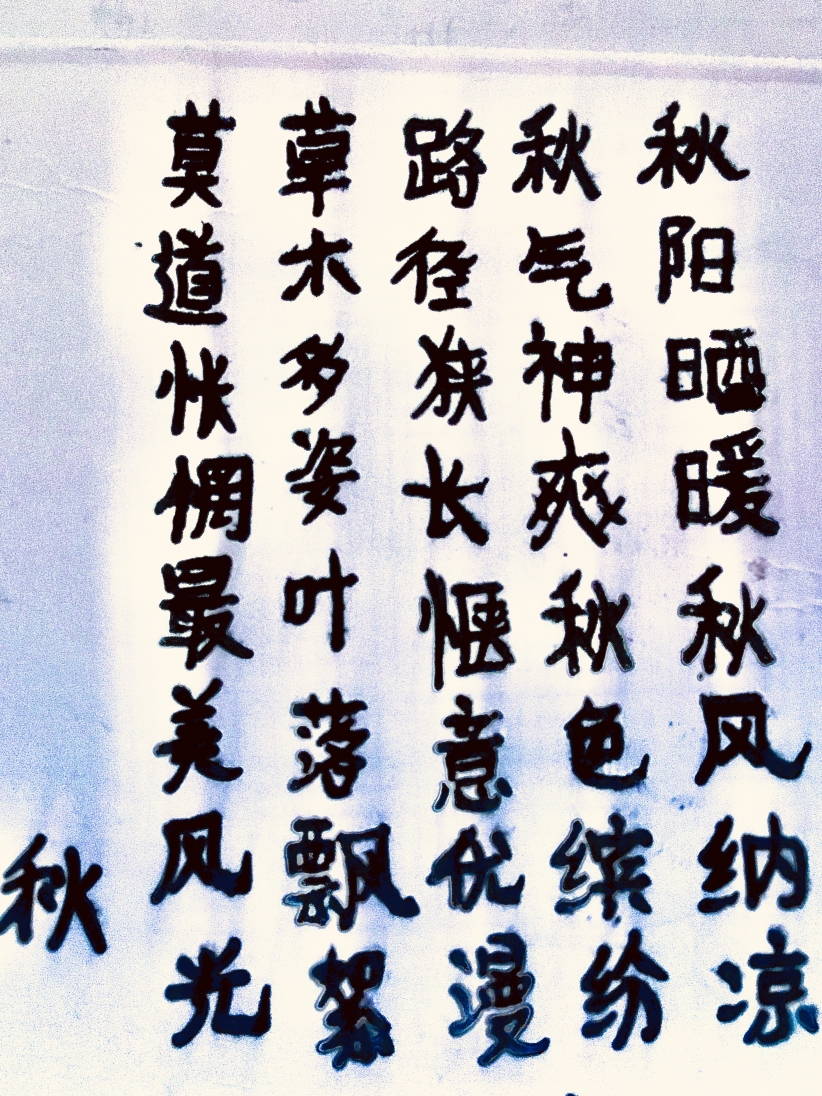 秋阳晒暖秋风纳凉
秋气神爽秋色缤纷
路径狭长惬意优漫
草木多姿叶落飘絮
莫道怅惘最美风光
秋